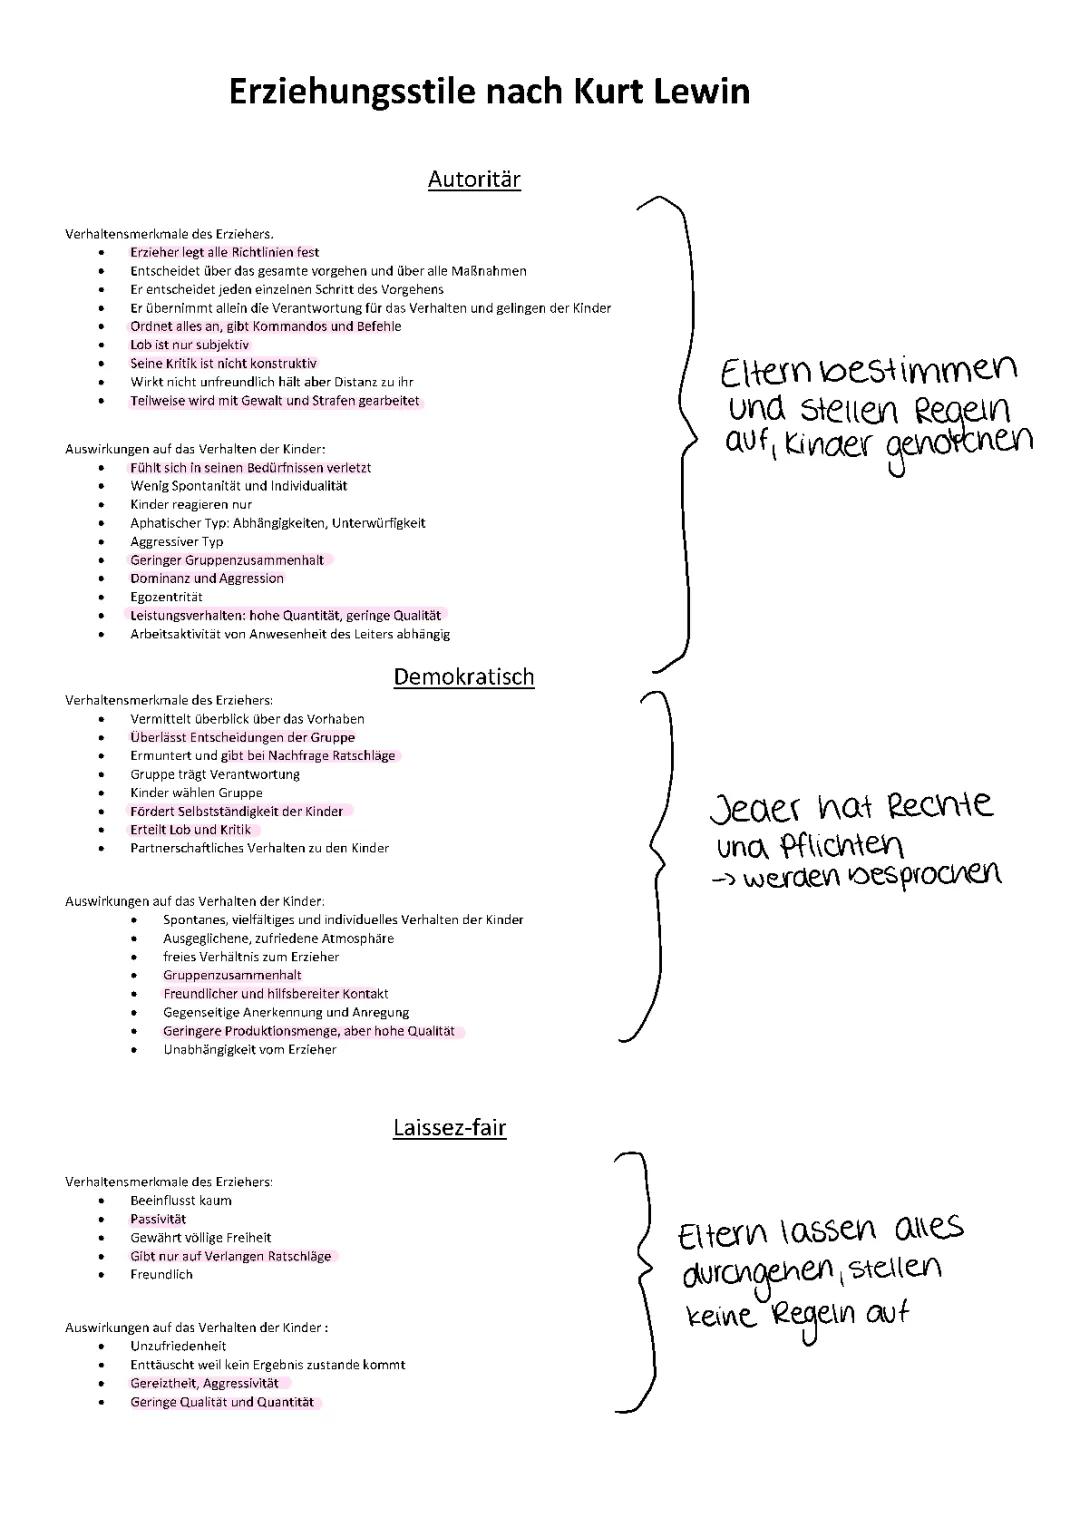 Erziehungsstile nach Kurt Lewin
Autoritär
Verhaltensmerkmale des Erziehers.
• Erzieher legt alle Richtlinien fest
• Entscheidet über das gesamte vorgehen und über alle Maßnahmen
• Er entscheidet jeden einzelnen Schritt des Vorgehens
• Er übernimmt allein die Verantwortung für das Verhalten und gelingen der Kinder
• Ordnet alles an, gibt Kommandos und Befehle
• Lob ist nur subjektiv
• Seine Kritik ist nicht konstruktiv
• Wirkt nicht unfreundlich hält aber Distanz zu ihr
• Teilweise wird mit Gewalt und Strafen gearbeitet
Eltern bestimmen
und stellen Regeln
auf, Kinder gehorchen
Auswirkungen auf das Verhalten der Kinder:
• Fühlt sich in seinen Bedürfnissen verletzt
• Wenig Spontanität und Individualität
• Kinder reagieren nur
• Aphatischer Typ: Abhängigkeiten, Unterwürfigkeit
• Aggressiver Typ
• Geringer Gruppenzusammenhalt
• Dominanz und Aggression
• Egozentrität
• Leistungsverhalten: hohe Quantität, geringe Qualität
• Arbeitsaktivität von Anwesenheit des Leiters abhängig
Demokratisch
Verhaltensmerkmale des Erziehers:
• Vermittelt überblick über das Vorhaben
• Überlässt Entscheidungen der Gruppe
• Ermuntert und gibt bei Nachfrage Ratschläge
• Gruppe trägt Verantwortung
• Kinder wählen Gruppe
• Fördert Selbstständigkeit der Kinder
• Erteilt Lob und Kritik
• Partnerschaftliches Verhalten zu den Kinder
Jeder hat Rechte
und Pflichten
-> werden besprochen
Auswirkungen auf das Verhalten der Kinder:
• Spontanes, vielfältiges und individuelles Verhalten der Kinder
• Ausgeglichene, zufriedene Atmosphäre
• freies Verhältnis zum Erzieher
• Gruppenzusammenhalt
• Freundlicher und hilfsbereiter Kontakt
• Gegenseitige Anerkennung und Anregung
• Geringere Produktionsmenge, aber hohe Qualität
• Unabhängigkeit vom Erzieher
Laissez-fair
Verhaltensmerkmale des Erziehers:
• Beeinflusst kaum
• Passivität
• Gewährt völlige Freiheit
• Gibt nur auf Verlangen Ratschläge
• Freundlich
Eltern lassen alles
durchgehen, stellen
keine Regeln auf
Auswirkungen auf das Verhalten der Kinder :
• Unzufriedenheit
• Enttäuscht weil kein Ergebnis zustande kommt
• Gereiztheit, Aggressivität
• Geringe Qualität und Quantität